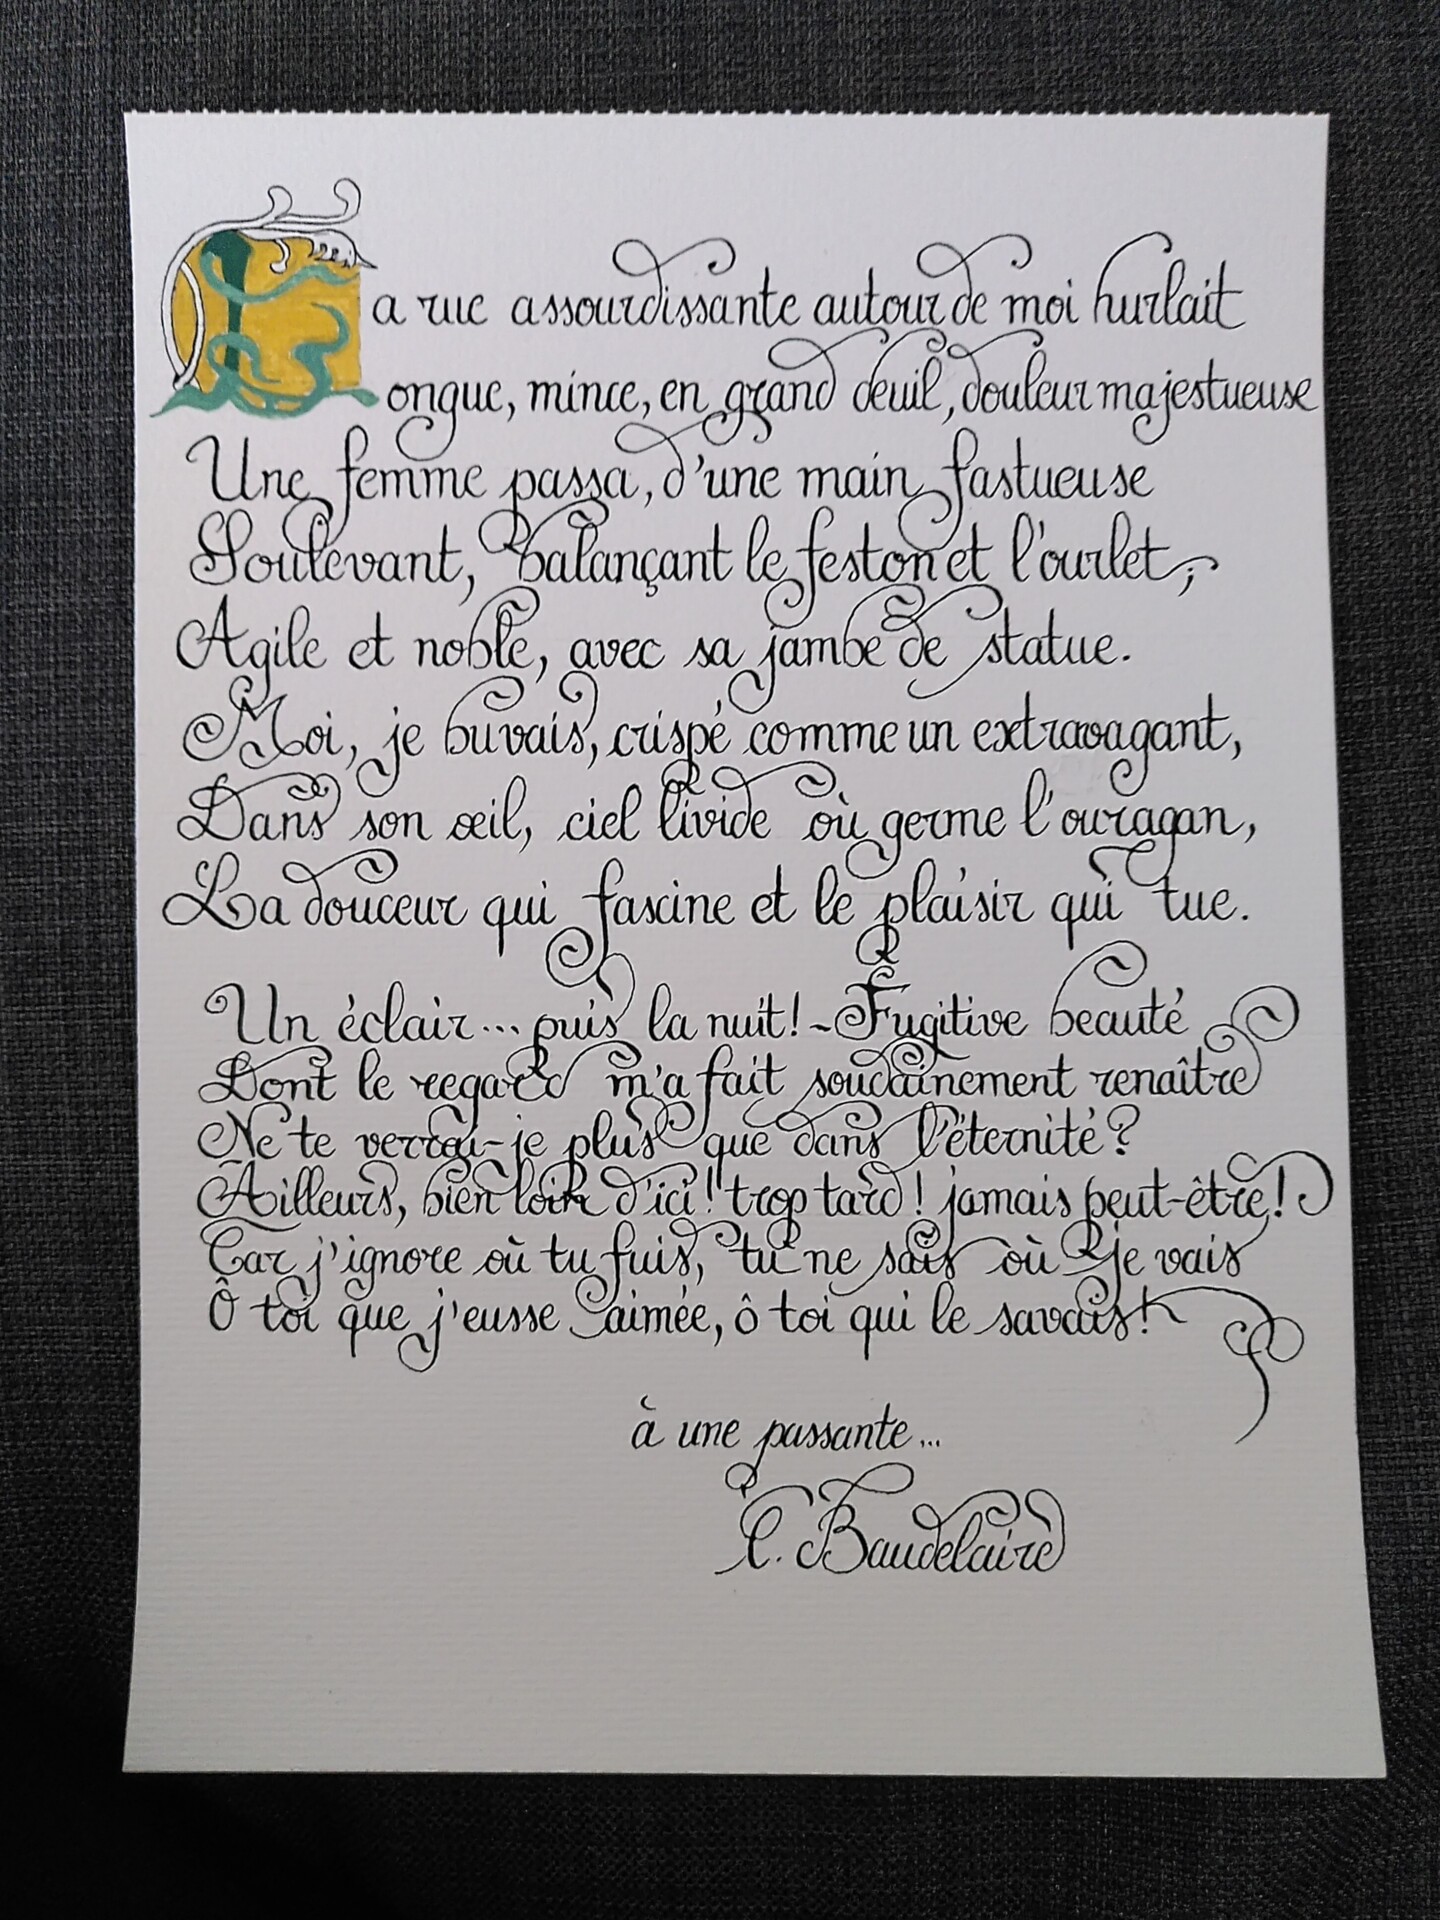 La rue assourdissante autour de moi hurlait
Longue, mince, en grand deuil, douleur majestueuse
Une femme passa, d'une main fastueuse
Soulevant, balançant le feston et l'ourlet;
Agile et noble, avec sa jambe de statue.
Moi, je buvais, crispé comme un extravagant,
Dans son œil, ciel livide où germe l'ouragan,
La douceur qui fascine et le plaisir qui tue.
Un éclair... puis la nuit! ~ Fugitive beauté
Dont le regard m'a fait soudainement renaître
Ne te verrai-je plus que dans l'éternité?
Ailleurs, bien loin d'ici! trop tard! jamais peut-être!
Car j'ignore où tu fuis, tu ne sais où je vais
Ô toi que j'eusse aimée, ô toi qui le savais!
à une passante...
C. Baudelaire